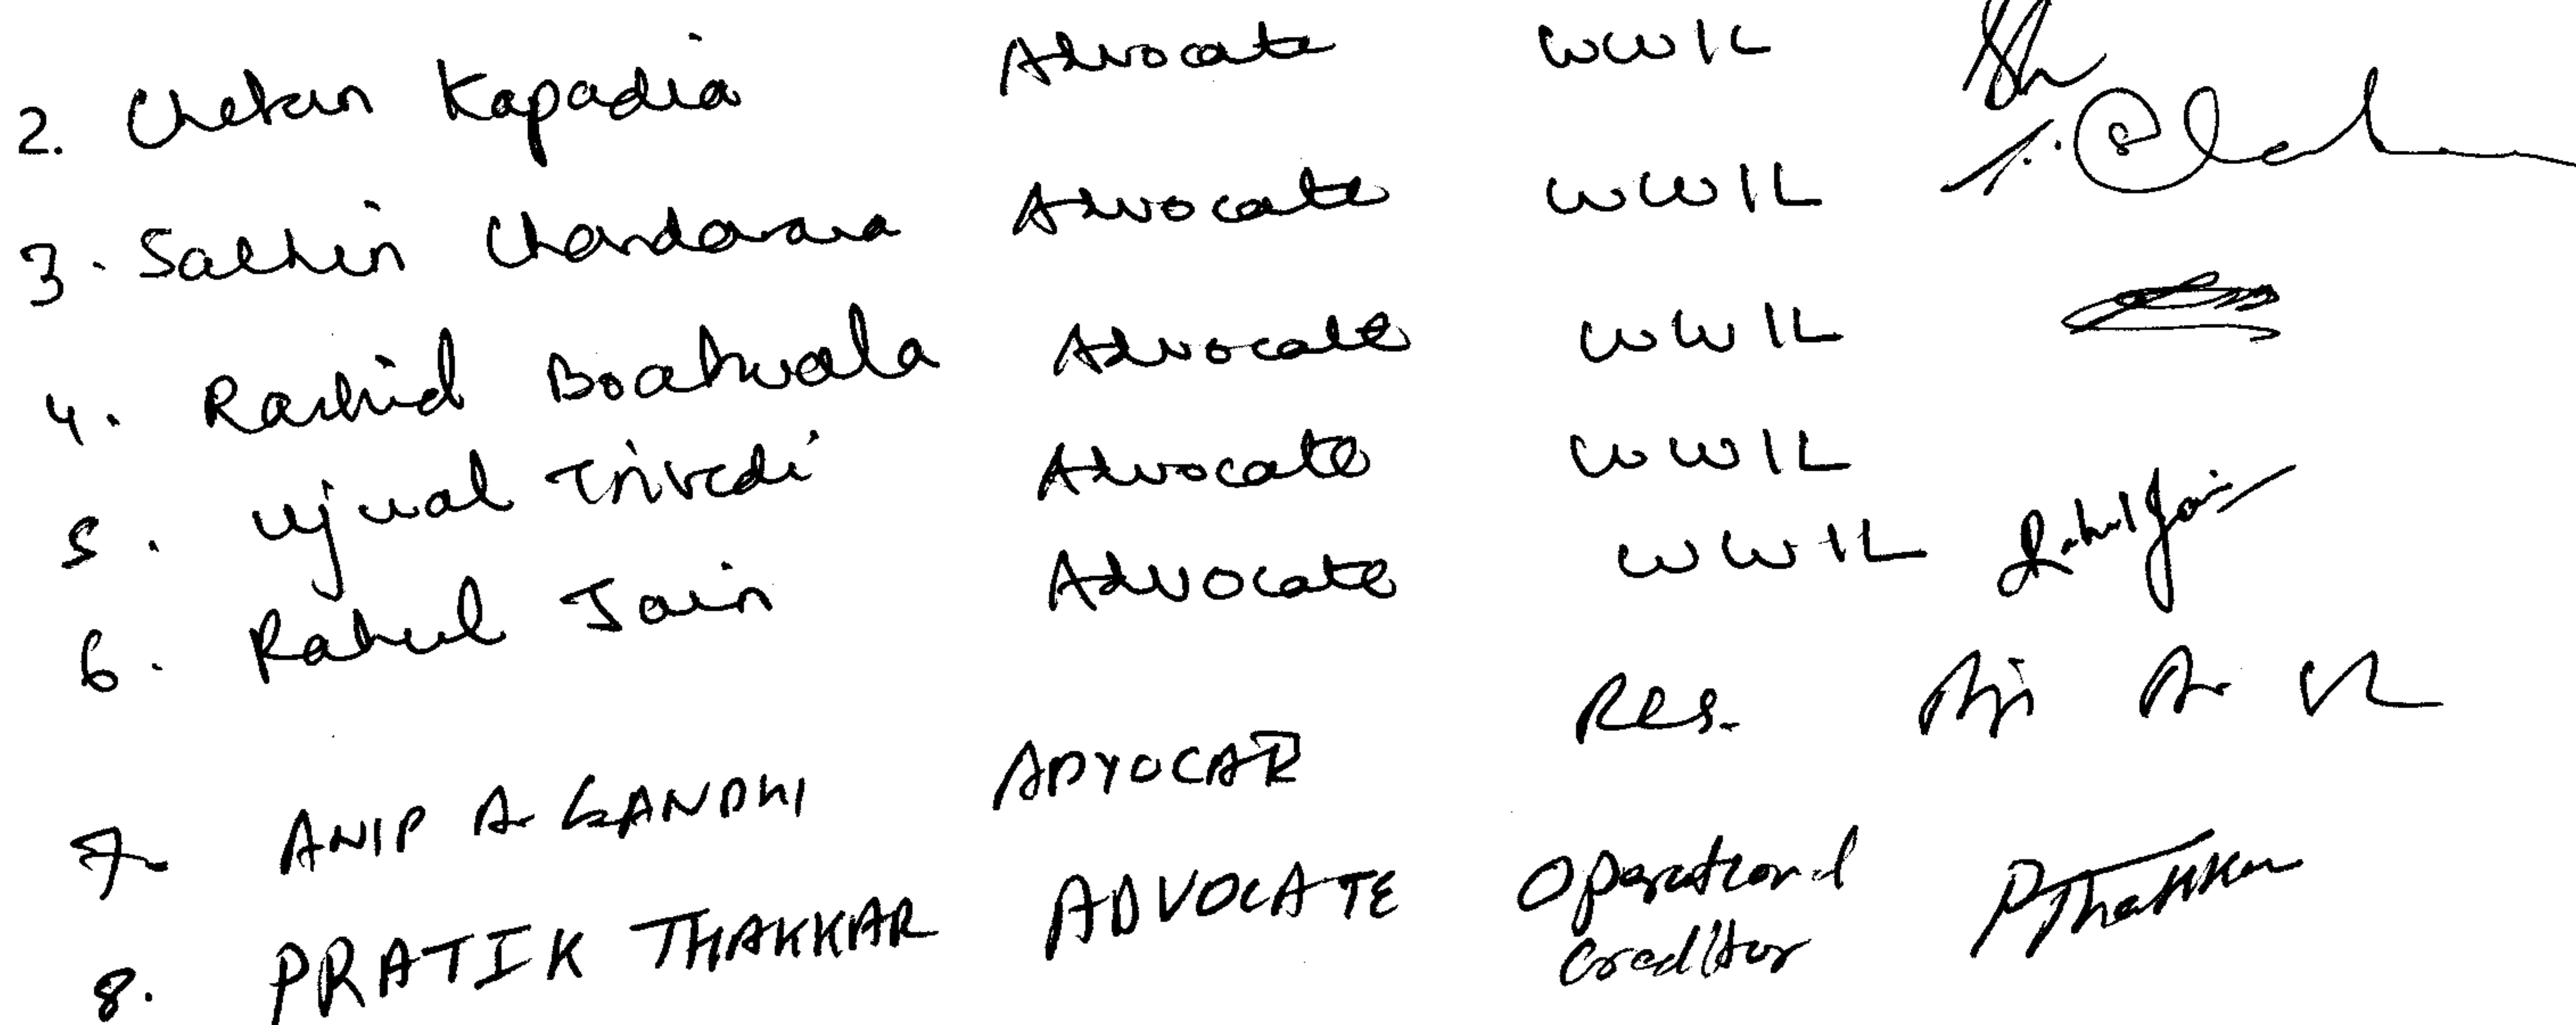 2. Chetan Kapadia Advocate WWIL
3. Sachin Chandarana Advocate WWIL
4. Rashid Boatwala Advocate WWIL
5. Ujwal Trivedi Advocate WWIL
6. Rahul Jain Advocate WWIL Rahul Jain
7. ANIP A. GANDHI ADVOCATE Res.
8. PRATIK THAKKAR ADVOCATE Operational PThakkar
Creditor